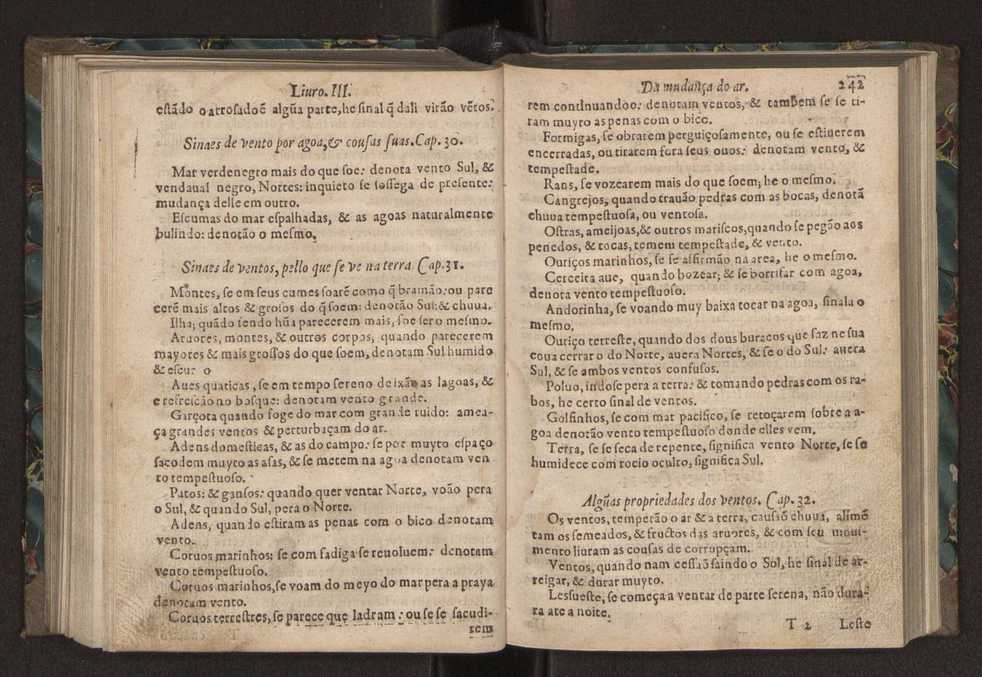 Liuro. III.
estãdo o arrosadoẽ algũa parte, he sinal q̃ dali virão vẽtos.
Sinaes de vento por agoa, & cousas suas. Cap. 30.
Mar verdenegro mais do que soe: denota vento Sul, &
vendaual negro, Nortes: inquieto se sossega de presente:
mudança delle em outro.
Escumas do mar espalhadas, & as agoas naturalmente
bulindo: denotão o mesmo.
Sinaes de ventos, pello que se ve na terra Cap. 31.
Montes, se em seus cumes soarẽ como q̃ bramão: ou pare
cerẽ mais altos & grosos do q̃ soem: denotão Sul: & chuua.
Ilha; quãdo sendo hũa parecerem mais, soe ser o mesmo.
Aruores, montes, & outros corpos, quando parecerem
mayores & mais grossos do que soem, denotam Sul humido
& escuro
Aues quaticas, se em tempo sereno deixão as lagoas, &
e refreicão no bosque: denotam vento grande.
Garçota quando foge do mar com grande ruido: amea-
ça grandes ventos & perturbaçam do ar.
Adens domesticas, & as do campo: se por muyto espaço
sacodem muyto as asas, & se metem na agoa denotam ven
to tempestuoso.
Patos: & gansos: quando quer ventar Norte, voão pera
o Sul, & quando Sul, pera o Norte.
Adens, quando estiram as penas com o bico denotam
vento.
Coruos marinhos: se com fadiga se reuoluem: denotam
vento tempestuoso.
Coruos marinhos, se voam do meyo do mar pera a praya
denotam vento.
Coruos terrestres, se parece que ladram: ou se se sacudi-
rem
Da mudança do ar. 242
rem continuandoo: denotam ventos, & tambem se se ti-
ram muyto as penas com o bico.
Formigas, se obrarem perguiçosamente, ou se estiuerem
encerradas, ou tirarem fora seus ouos: denotam vento, &
tempestade.
Rans, se vozearem mais do que soem; he o mesmo.
Cangrejos, quando trauão pedras com as bocas, denotã
chuua tempestuosa, ou ventosa.
Ostras, ameijoas, & outros mariscos, quando se pegão aos
penedos, & rocas, temem tempestade, & vento.
Ouriços marinhos, se se afirmão na area, he o mesmo.
Cerceita aue, quando bozear; & se borrifar com agoa,
denota vento tempestuoso.
Andorinha, se voando muy baixa tocar na agoa, sinala o
mesmo.
Ouriço terreste, quando dos dous buracos que faz ne sua
coua cerrar o do Norte, auera Nortes, & se o do Sul: auera
Sul, & se ambos ventos confusos.
Poluo, indose pera a terra: & tomando pedras com os ra-
bos, he certo sinal de ventos.
Golfinhos, se com mar pacifico, se retoçarem sobre a a-
goa denotão vento tempestuoso donde elles vem.
Terra, se se seca de repente, significa vento Norte, se se
humidece com rocio oculto, significa Sul.
Algũas propriedades dos ventos. Cap. 32.
Os ventos, temperão o ar & a terra, causaõ chuua, alimẽ
tam os semeados, & fructos das aruores, & com seu moui-
mento liuram as cousas de corrupçam.
Ventos, quando nam cessaõ saindo o Sol, he sinal de ar-
reigar, & durar muyto.
Lessueste, se começa a ventar de parte serena, não dura-
ra ate a noite.
T 2 Leste